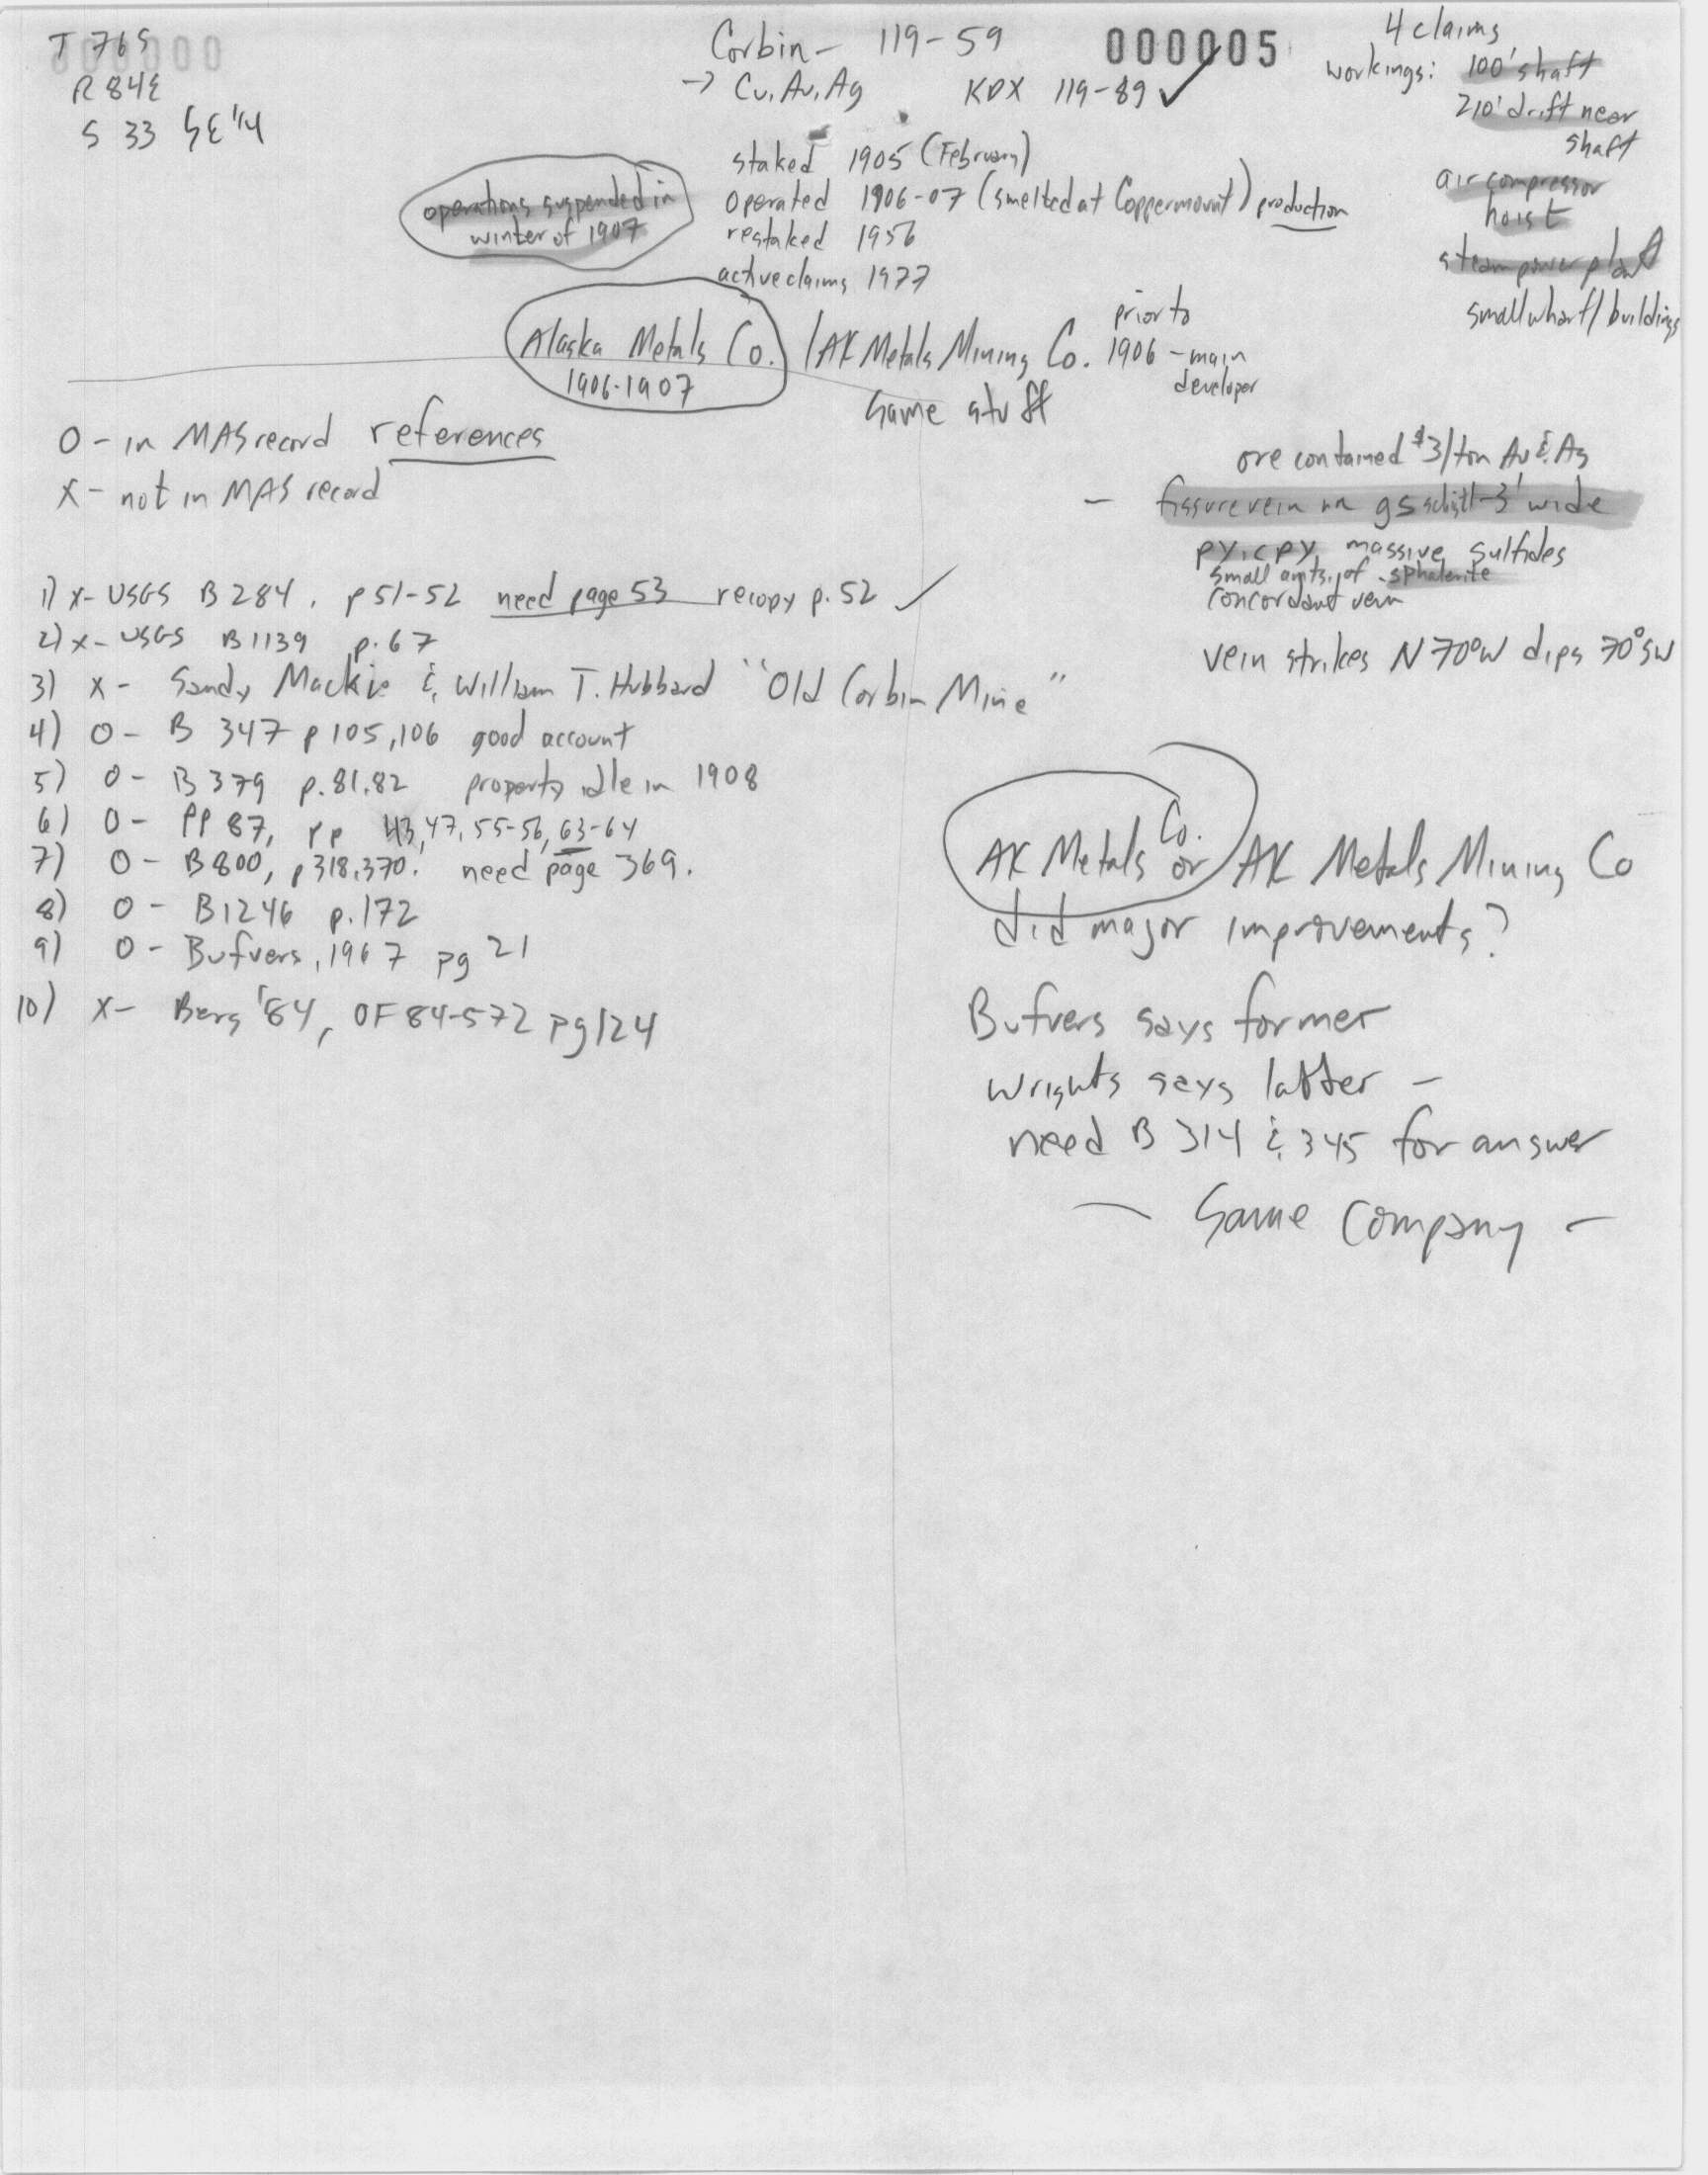 T 76S
000000
R 84E
S 33 SE 1/4
Corbin - 119-59
→ Cu, Au, Ag KDX 119-89 ✓
000005
4 claims
workings: 100' shaft
210' drift near
shaft
air compressor
hoist
steam power plant
small wharf/buildings
operations suspended in
winter of 1907
staked 1905 (February)
operated 1906-07 (smelted at Coppermount) production
restaked 1956
active claims 1977
Alaska Metals Co.
1906-1907
/AK Metals Mining Co.
same stuff
prior to
1906 - main
developer
O - in MAS record references
X - not in MAS record
ore contained $3/ton Au & Ag
- fissure vein in gs schist 1-3' wide
py, cpy, massive sulfides
small amts. of sphalerite
concordant vein
vein strikes N 70°W dips 70°SW
1) X- USGS B 284, p 51-52 need page 53 recopy p. 52 ✓
2) X- USGS B1139 p. 67
3) X- Sandy Mackie & William T. Hubbard "Old Corbin Mine"
4) O- B 347 p 105,106 good account
5) O- B 379 p. 81,82 property idle in 1908
6) O- PP 87, pp 43,47,55-56,63-64
7) O- B800, p318,370. need page 369.
8) O- B1246 p. 172
9) O- Bufvers, 1967 pg 21
10) X- Berg '84, OF 84-572 pg 124
AK Metals Co. or AK Metals Mining Co
did major improvements?
Bufvers says former
Wrights says latter -
need B 314 & 345 for answer
- Same Company -